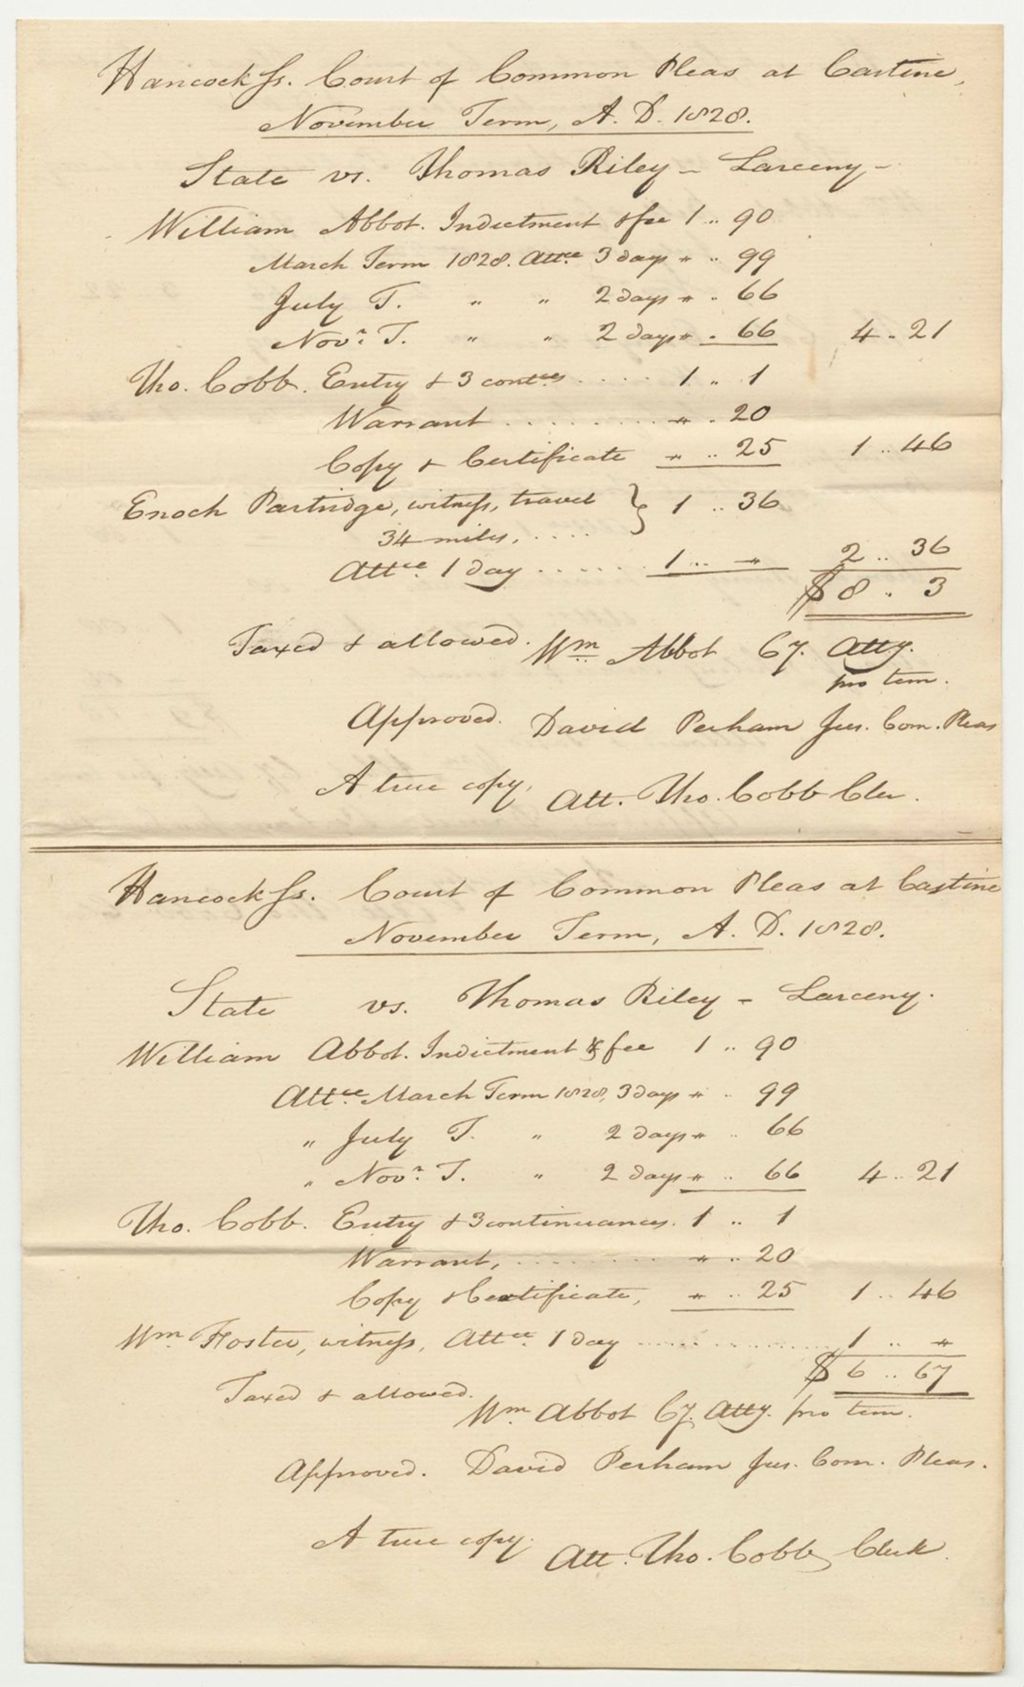 Hancock ss. Court of Common Pleas at Castine,
November Term, A. D. 1828.
State vs. Thomas Riley - Larceny -
William Abbot. Indictment & fee 1 .. 90
March Term 1828. Attce 3 days " .. 99
July T. " " 2 days " . 66
Novr T. " " 2 days " . 66 4 .. 21
Tho. Cobb. Entry & 3 contces .... 1 .. 1
Warrant ......... " . 20
Copy & Certificate " .. 25 1 .. 46
Enoch Partridge, witness, travel } 1 .. 36
34 miles, ....
Attce 1 day ...... 1 .. " 2 .. 36
$8 .. 3
Taxed & allowed. Wm Abbot Cy. Atty.
pro tem.
Approved. David Perham Jus. Com. Pleas
A true copy. Att. Tho. Cobb Cler.
Hancock ss. Court of Common Pleas at Castine
November Term, A. D. 1828.
State vs. Thomas Riley - Larceny.
William Abbot. Indictment & fee 1 .. 90
Attce March Term 1828, 3 days " .. 99
" July T. " 2 days " .. 66
" Novr T. " 2 days " .. 66 4 .. 21
Tho. Cobb. Entry & 3 continuances. 1 .. 1
Warrant, ......... " .. 20
Copy & Certificate, " .. 25 1 .. 46
Wm Foster, witness, Attce 1 day ............ 1 .. "
$6 .. 67
Taxed & allowed.
Wm Abbot Cy. Atty. pro tem.
Approved. David Perham Jus. Com. Pleas.
A true copy. Att. Tho. Cobb, Clerk.